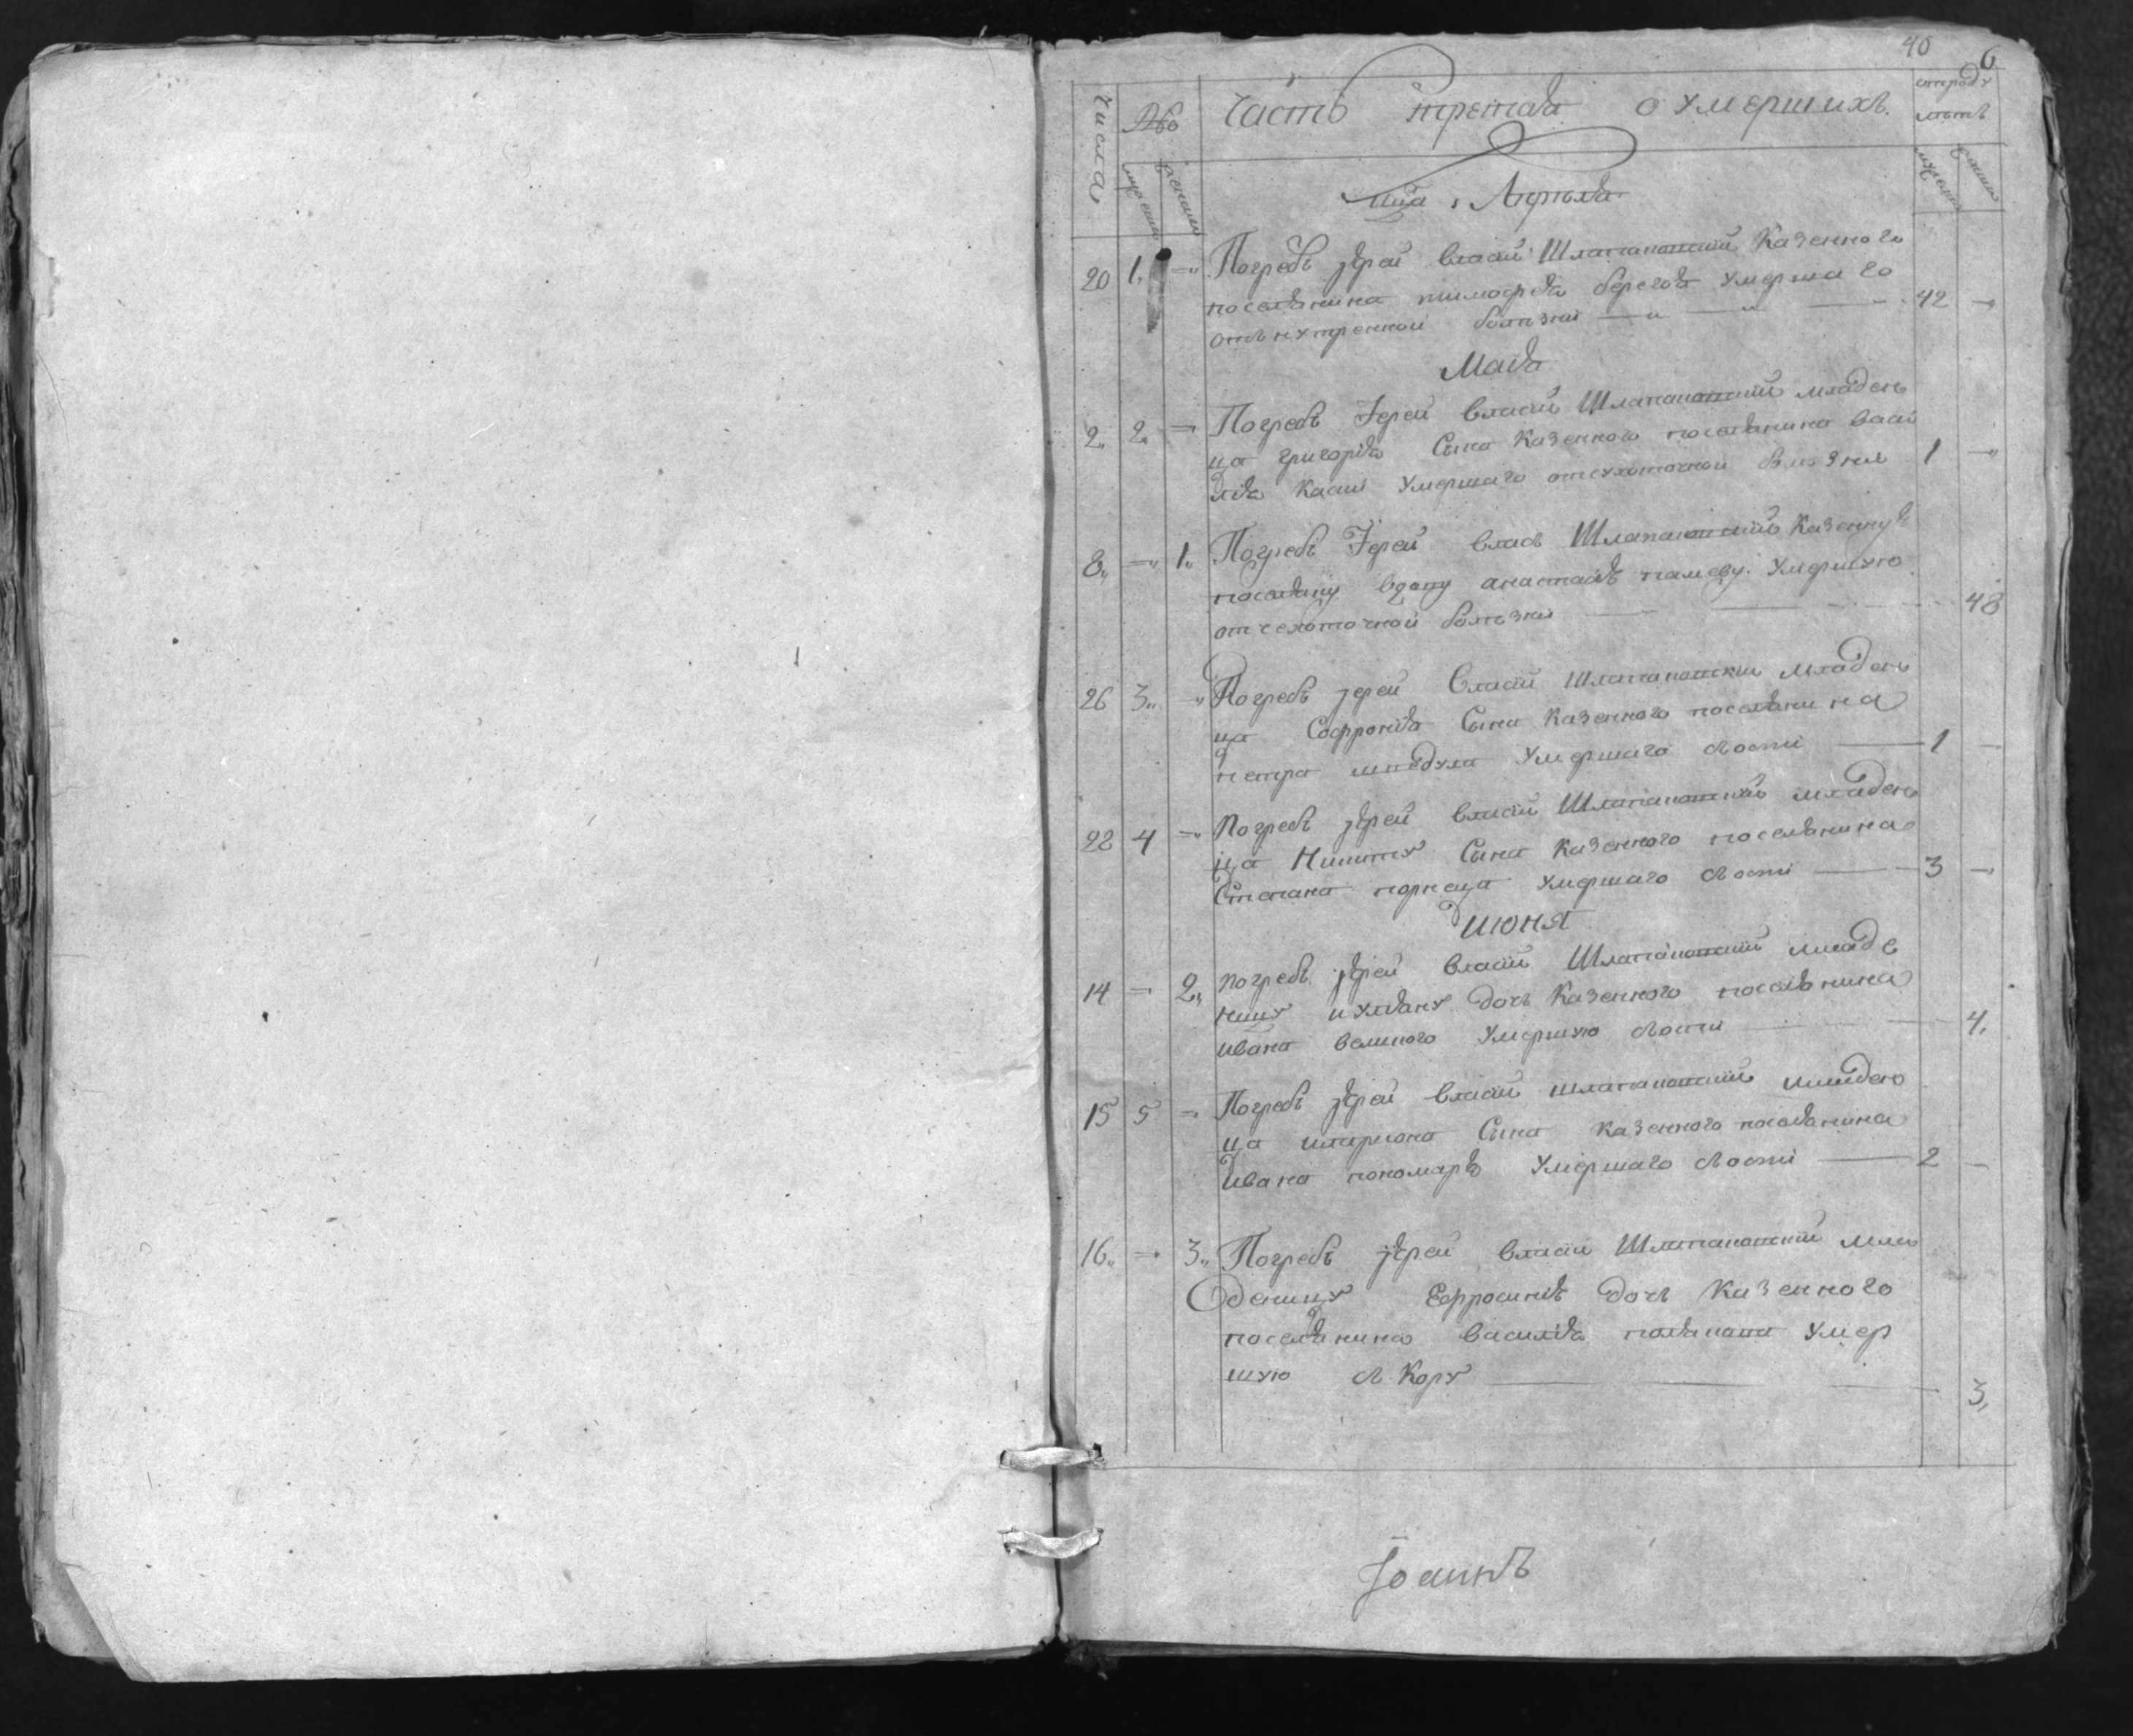 40 6
Числа
№
мужеска
женска
Часть третая о умершихъ.
отроду
летъ
мужеска
женска
Апрѣля
20 1. Погребъ іерей Власій Шлапановский Казенного
поселянина тимофея берегоя Умершаго
отвнутренной болезни 42
Маія
2. 2. Погребъ Іерей власій Шлапановский младен
ца григорія Сына Казенного поселянина васи
лія Умершаго отсухоточной болезни 1
8. 1. Погребъ Іерей власъ Шлапановский Казенную
поселянку вдову анастасію Умершую
от сухоточной болезни 48
26 3. Погребъ іерей Власій Шлапановский младен
ца Софронія Сына Казенного поселянина
петра Умершаго 1
22 4 Погребъ іерей власій Шлапановский младен
ца Никиту Сына Казенного поселянина
Степана Умершаго 3
июня
14 2. погребъ іерей власій Шлапановский младе
ницу иуляну дочь Казенного поселянина
ивана великого Умершую 4.
15 5 Погребъ іерей власій шлапановский младен
ца илариона Сына казенного поселянина
ивана пономаря Умершаго 2
16. 3. Погребъ іерей власій Шлапановский мла
деницу Ефросинію дочь Казенного
поселянина василія Умер
шую 3,
Іоаннъ